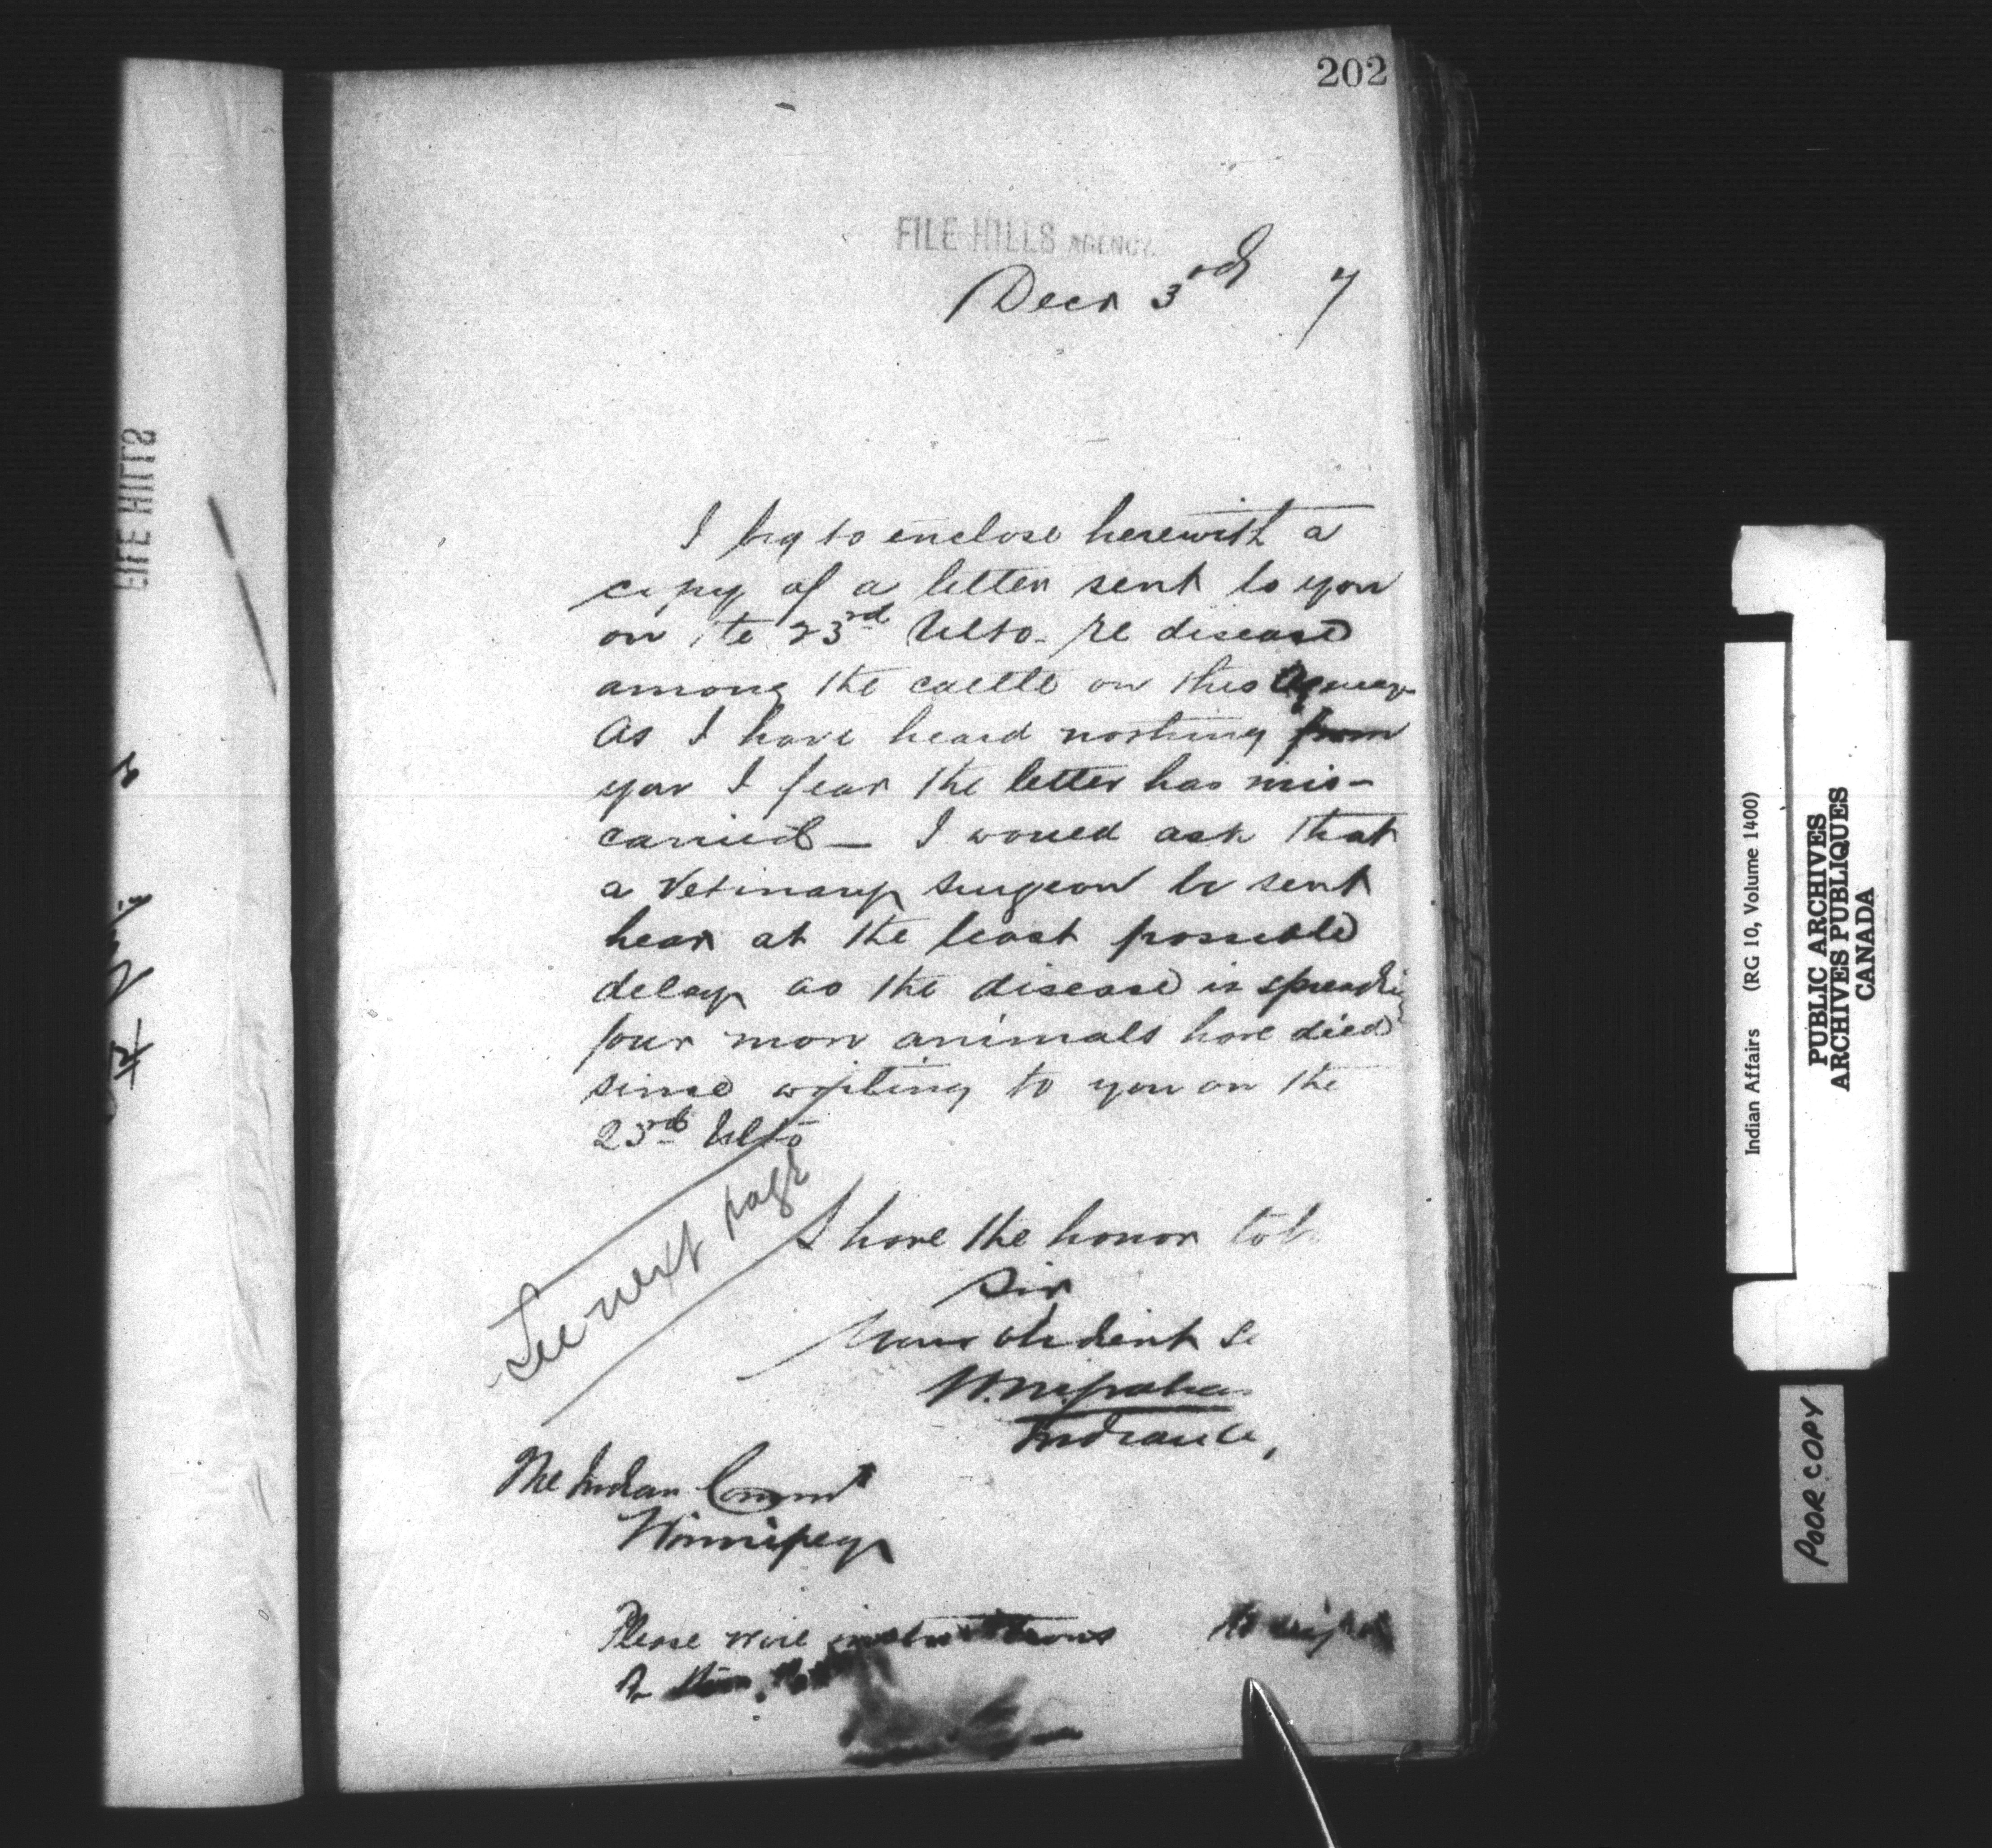 202
FILE HILLS AGENCY
Decr 3rd 7
I beg to enclose herewith a
copy of a letter sent to you
on the 23rd Ulto. re disease
among the cattle on this Agency
As I have heard nothing from
you I fear the letter has mis-
carried — I would ask that
a Vetinary Surgeon be sent
hear at the least possible
delay as the disease is spreadi
four more animals have died
since writing to you on the
23rd Ulto
See next page
I have the honor to be
Sir
Your obedient Se
Ind
The Indian Commr
Winnipeg
Please wire instructions
FILE HILLS
Indian Affairs (RG 10, Volume 1400)
PUBLIC ARCHIVES
ARCHIVES PUBLIQUES
CANADA
POOR COPY